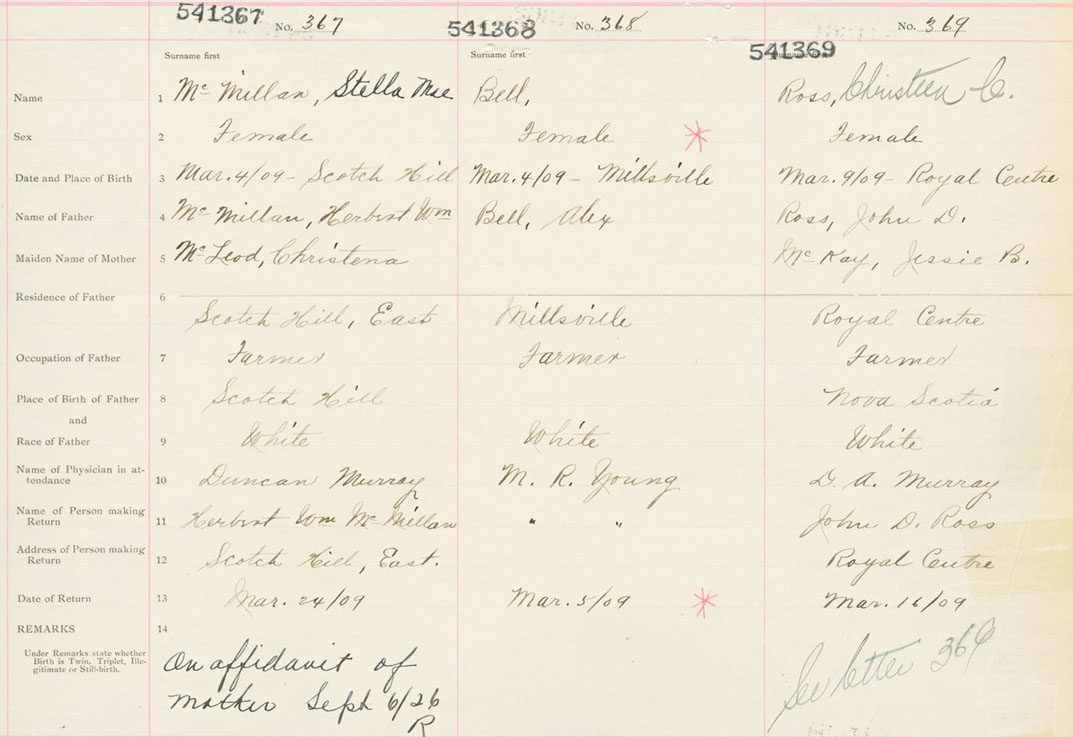 541367 No. 367 541368 No. 368 541369 No. 369
Surname first Surname first Surname first
Name 1 Mc Millan, Stella Mae Bell, Ross, Christeen C.
Sex 2 Female Female Female
Date and Place of Birth 3 Mar. 4/09 - Scotch Hill Mar. 4/09 - Millsville Mar. 9/09 - Royal Centre
Name of Father 4 Mc Millan, Herbert Wm Bell, Alex Ross, John D.
Maiden Name of Mother 5 Mc Leod, Christena Mc Kay, Jessie B.
Residence of Father 6
Scotch Hill, East Millsville Royal Centre
Occupation of Father 7 Farmer Farmer Farmer
Place of Birth of Father 8 Scotch Hill Nova Scotia
and
Race of Father 9 White White White
Name of Physician in at-
tendance 10 Duncan Murray M. R. Young D. A. Murray
Name of Person making
Return 11 Herbert Wm Mc Millan " " John D. Ross
Address of Person making
Return 12 Scotch Hill, East. Royal Centre
Date of Return 13 Mar. 24/09 Mar. 5/09 Mar. 16/09
REMARKS 14
Under Remarks state whether
Birth is Twin, Triplet, Ille-
gitimate or Still-birth.
On affidavit of
mother Sept 6/26
R
See letter 369